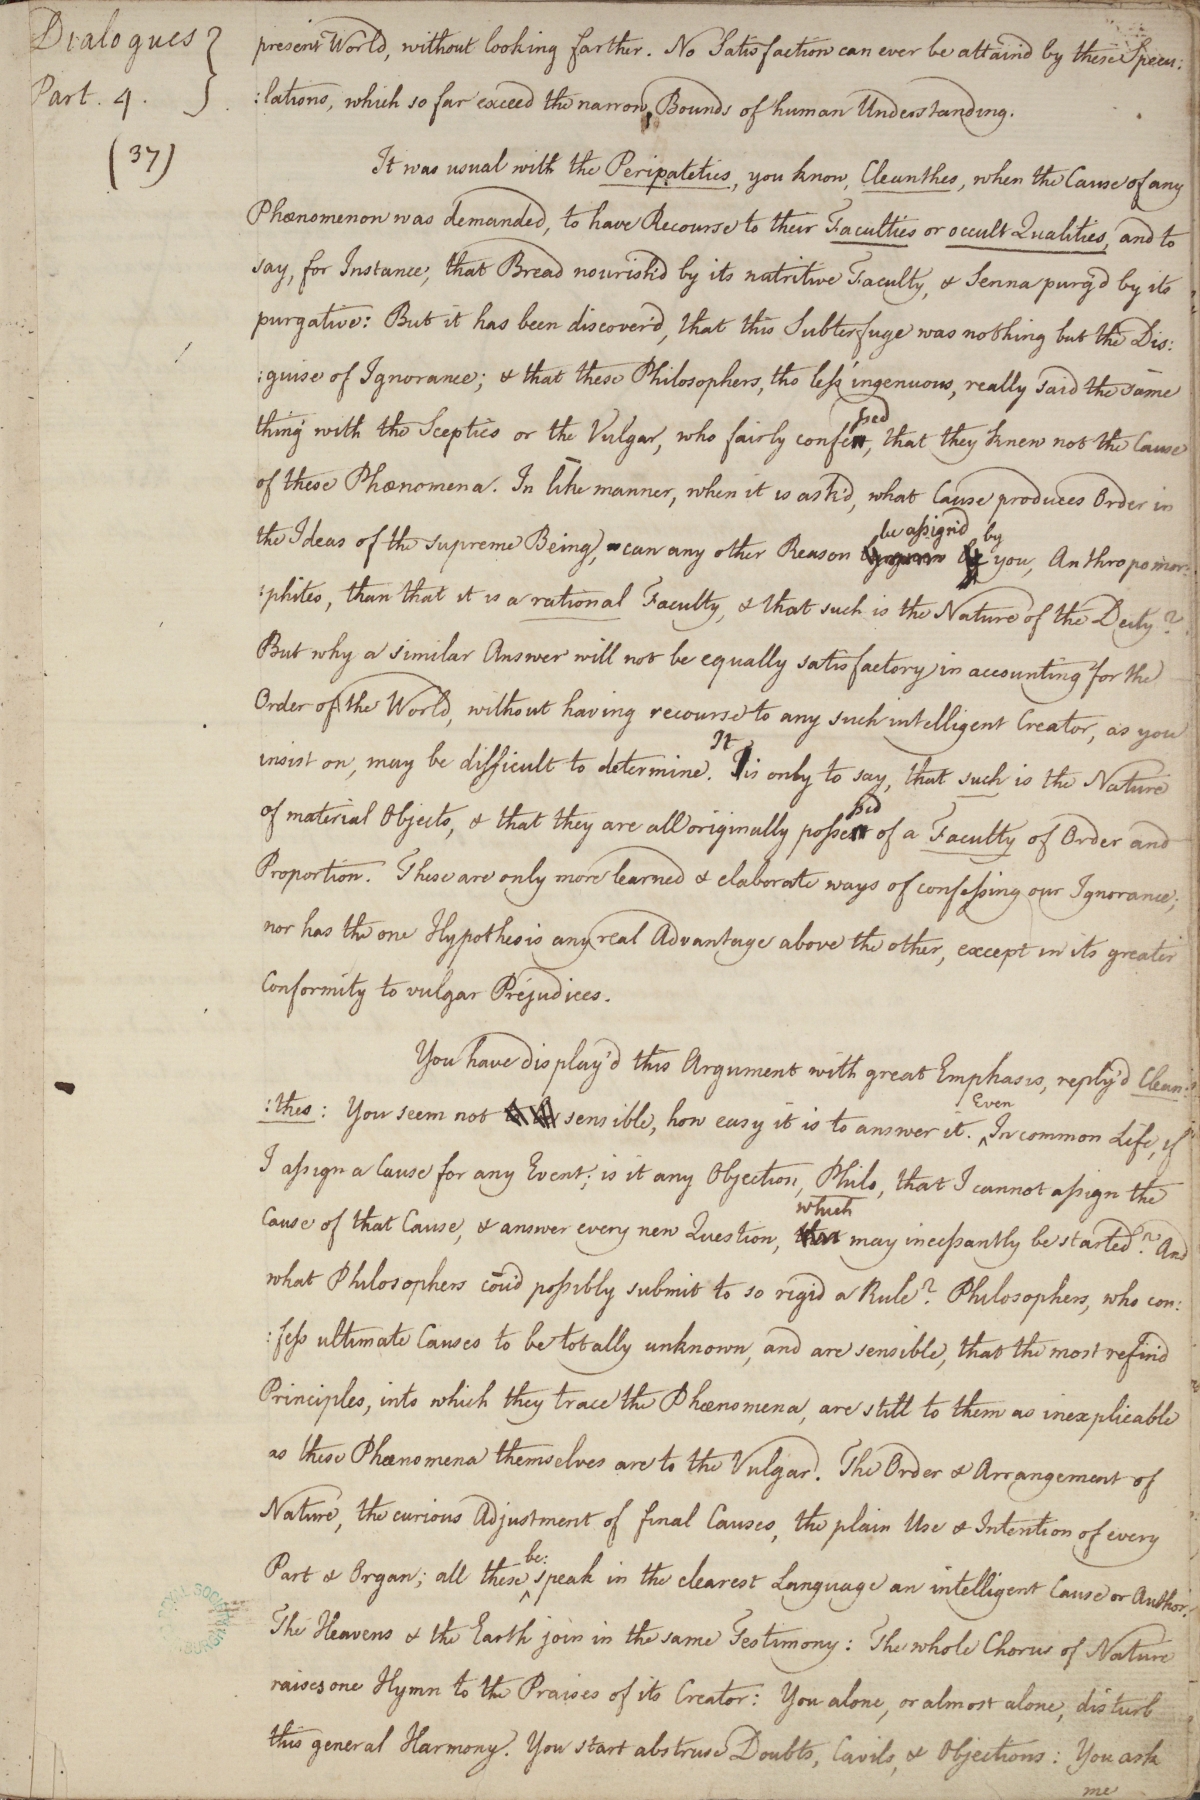 Dialogues
Part. 4.
(37)
present World, without looking farther. No Satisfaction can ever be attain'd by these Specu:
:lations, which so far exceed the narrow Bounds of human Understanding.
It was usual with the Peripatetics, you know, Cleanthes, when the Cause of any
Phænomenon was demanded, to have Recourse to their Faculties or occult Qualities, and to
say, for Instance, that Bread nourish'd by its nutritive Faculty, & Senna purg'd by its
purgative: But it has been discover'd, that this Subterfuge was nothing but the Dis:
:guise of Ignorance; & that these Philosophers, tho less ingenuous, really said the same
thing with the Sceptics or the Vulgar, who fairly confessed, that they knew not the Cause
of these Phænomena. In like manner, when it is ask'd, what Cause produces Order in
the Ideas of the supreme Being, can any other Reason be assign'd by you, Anthropomor:
:phites, than that it is a rational Faculty, & that such is the Nature of the Deity?
But why a similar Answer will not be equally satisfactory in accounting for the
Order of the World, without having recourse to any such intelligent Creator, as you
insist on, may be difficult to determine. It is only to say, that such is the Nature
of material Objects, & that they are all originally possessed of a Faculty of Order and
Proportion. These are only more learned & elaborate ways of confessing our Ignorance;
nor has the one Hypothesis any real Advantage above the other, except in its greater
Conformity to vulgar Prejudices.
You have display'd this Argument with great Emphasis, reply'd Clean:
:thes: You seem not sensible, how easy it is to answer it. Even In common Life, if
I assign a Cause for any Event; is it any Objection, Philo, that I cannot assign the
Cause of that Cause, & answer every new Question, which may incessantly be started? And
what Philosophers coud possibly submit to so rigid a Rule? Philosophers, who con:
:fess ultimate Causes to be totally unknown, and are sensible, that the most refin'd
Principles, into which they trace the Phænomena, are still to them as inexplicable
as these Phænomena themselves are to the Vulgar. The Order & Arrangement of
Nature, the curious Adjustment of final Causes, the plain Use & Intention of every
Part & Organ; all these be:speak in the clearest Language an intelligent Cause or Author.
The Heavens & the Earth join in the same Testimony: The whole Chorus of Nature
raises one Hymn to the Praises of its Creator: You alone, or almost alone, disturb
this general Harmony. You start abstruse Doubts, Cavils, & Objections: You ask
me